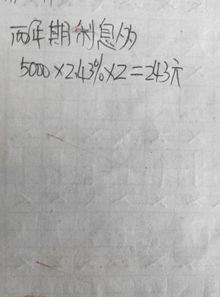 两年期利息为
5000×2.43%×2=243元